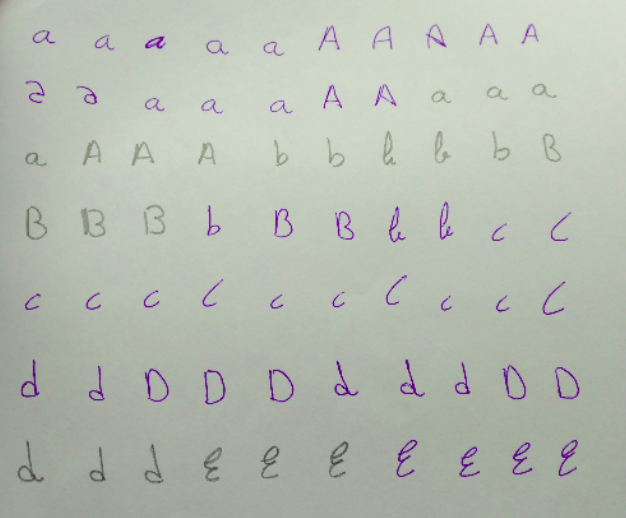 a a a a a A A A A A
a a a a a A A a a a
a A A A b b b b b B
B B B b B B b b c C
c c c C c c C c c C
d d D D D d d d D D
d d d E E E E E E E